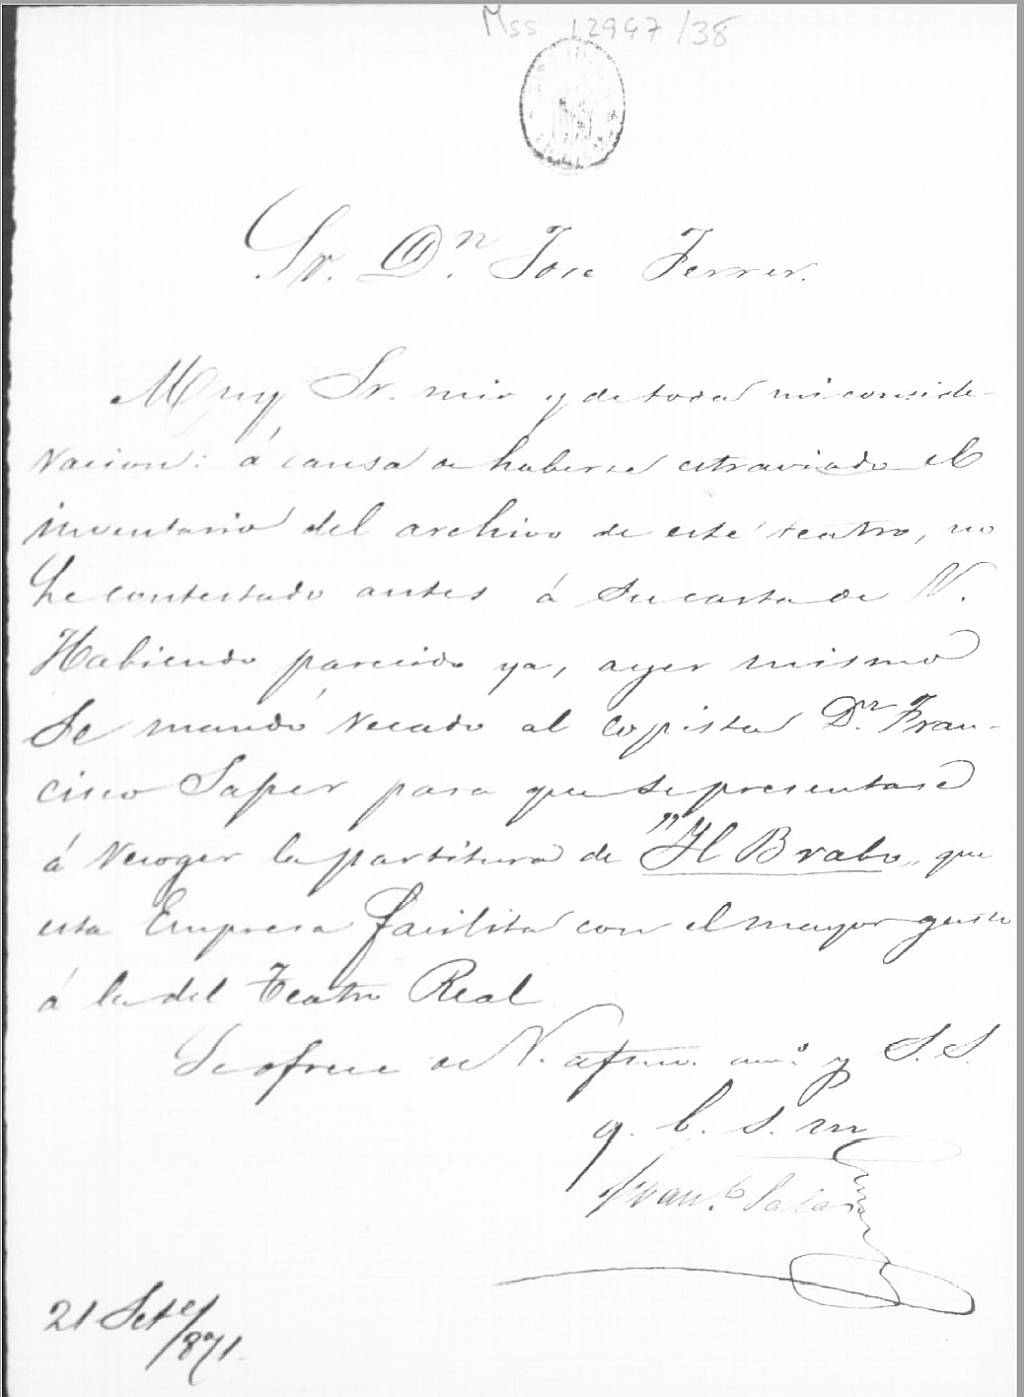 Mss 12947/38
Sr. Dn. Jose Ferrer.
Muy Sr. mio y de toda mi conside-
racion: á causa de haberse estraviado el
inventario del archivo de este teatro, no
he contestado antes á su carta de V.
Habiendo parecido ya, ayer mismo
se mandó recado al copista Dn. Fran-
cisco Saper para que se presentase
á recoger la partitura de "Il Brabo" que
esta Empresa facilita con el mayor gusto
á la del Teatro Real
Se ofrece de V. afmo. amo. y S. S.
q. b. s. m
Franco. Salas
21 Sete/871.